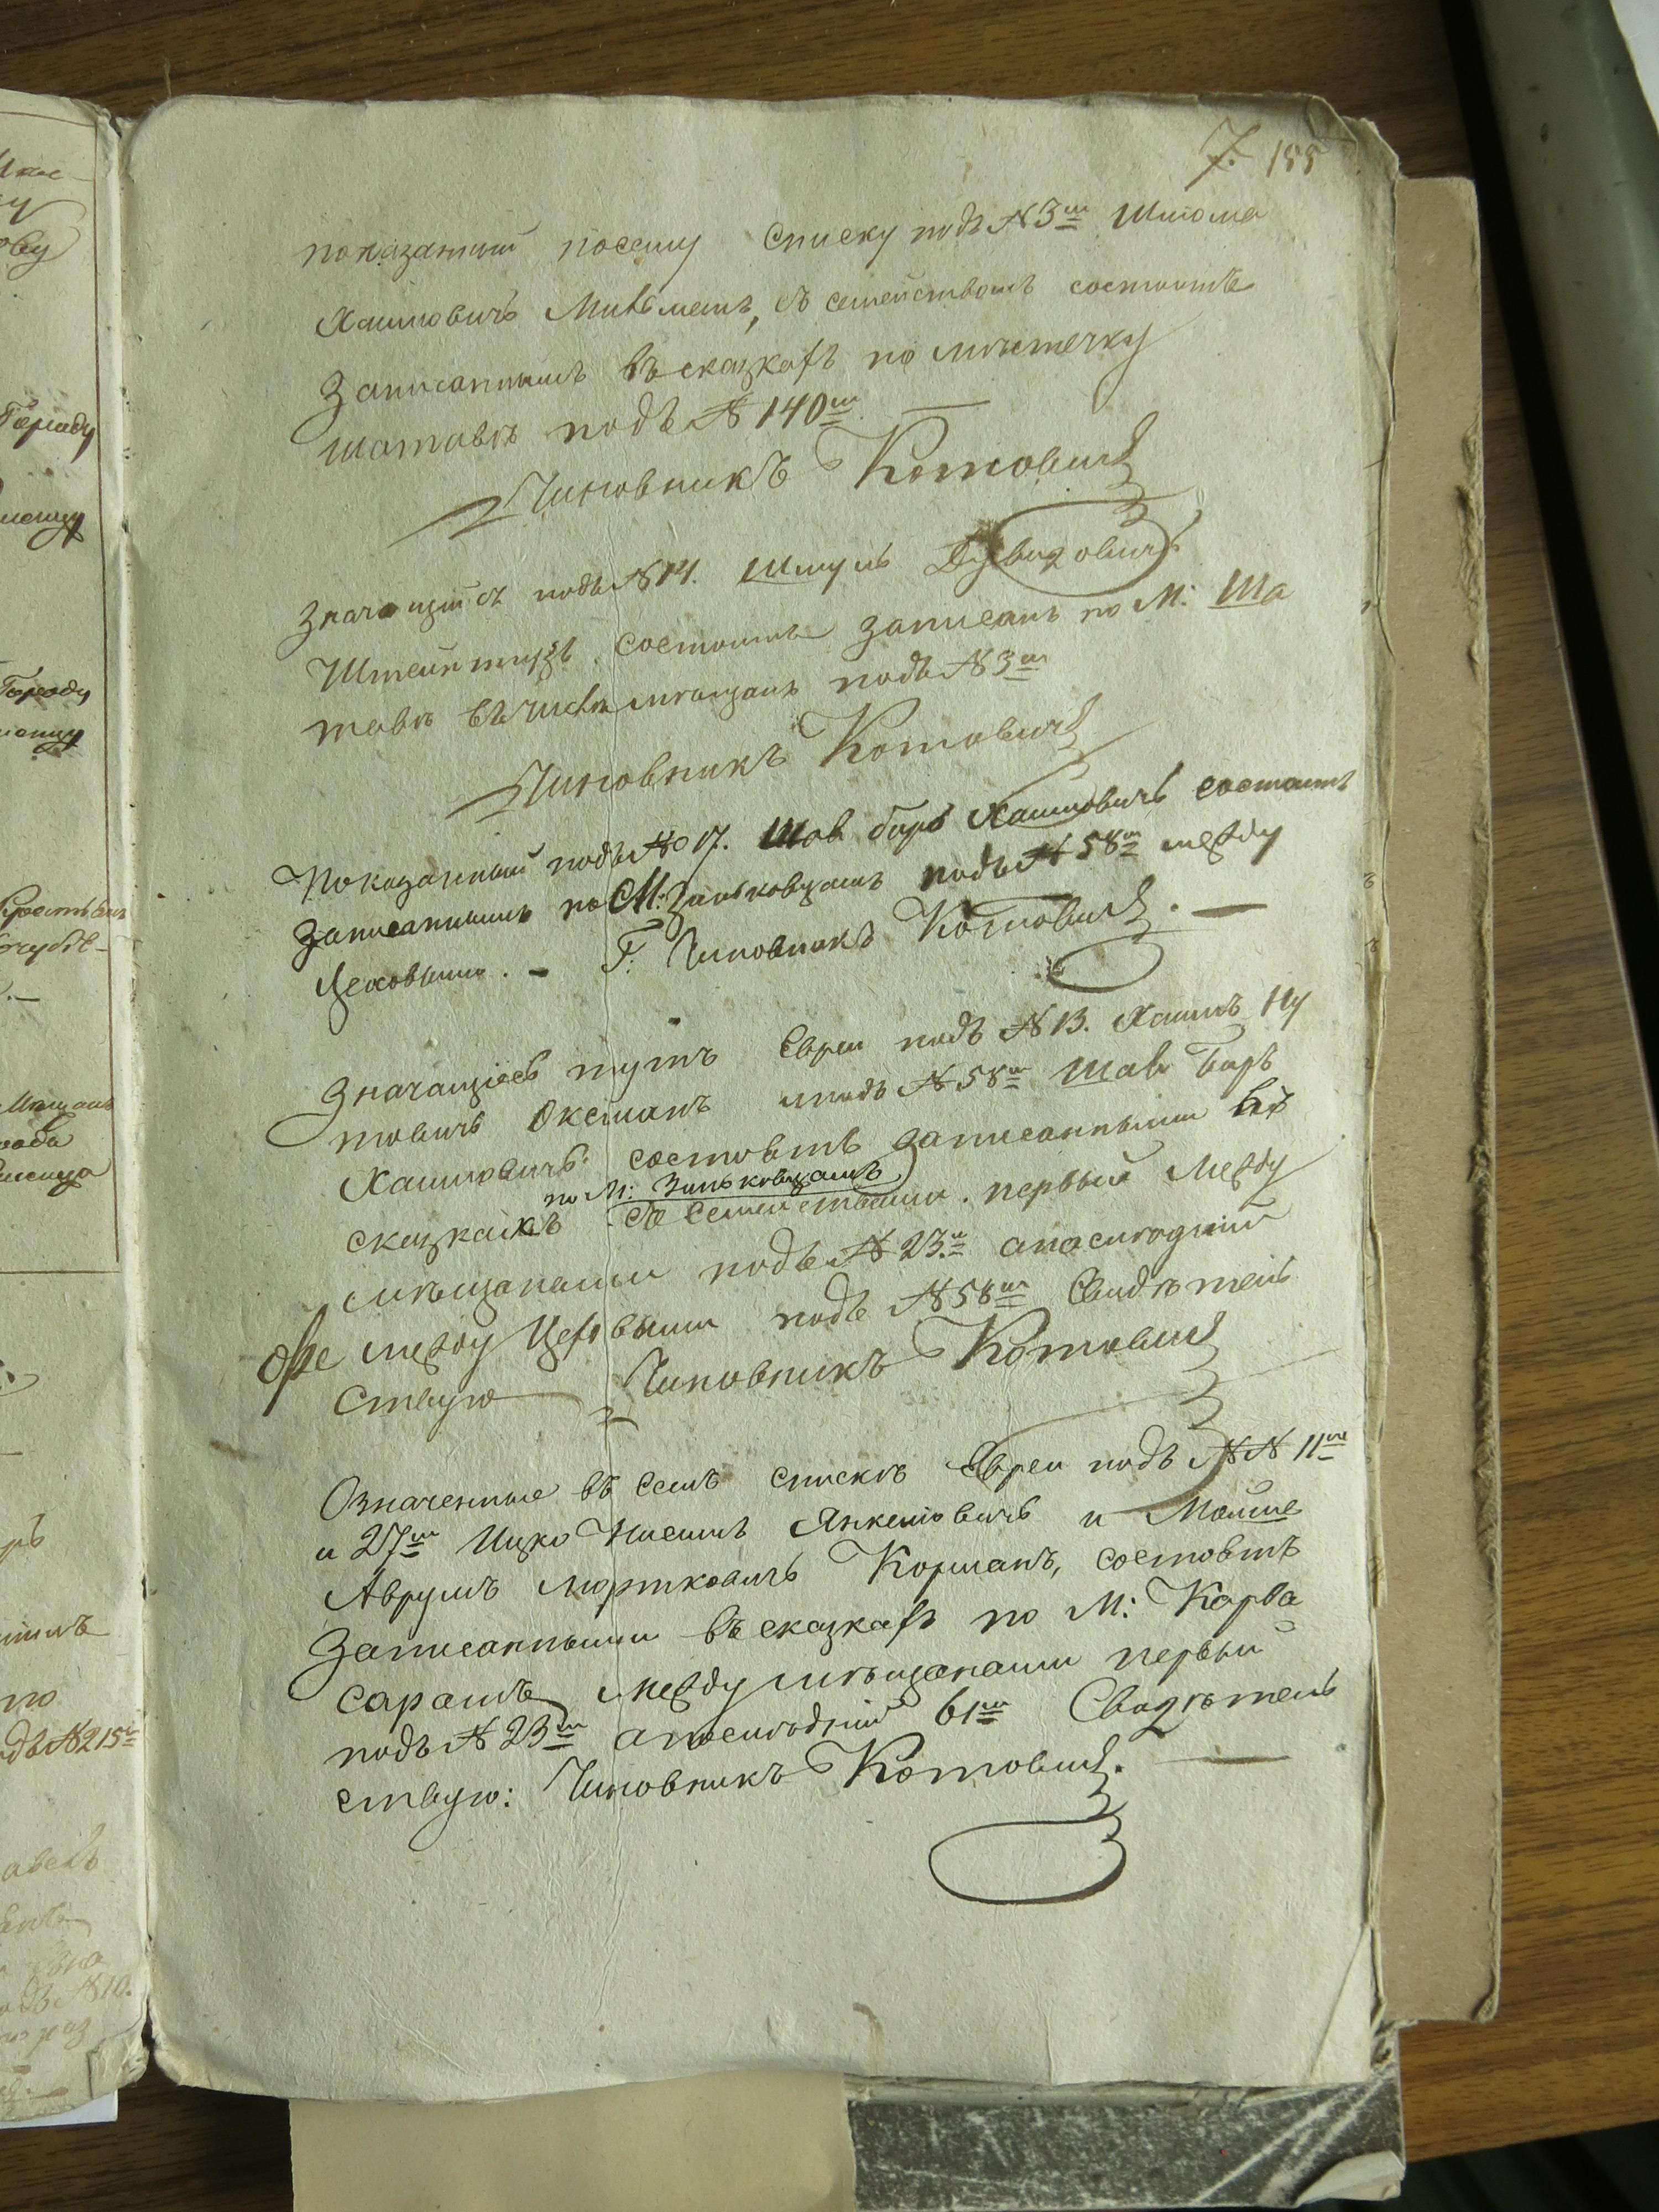 7. 155
показанный посему списку подъ №3м Шлома
Хаимовичъ Мильметъ, съ семействомъ состоитъ
записаннымъ въ сказкахъ по мѣстечку
шатавѣ подъ №140м
Чиновникъ Котовичъ
Значащійсь подъ №14. Шмуль Дувидовичъ
Штейнтузъ состоитъ записанъ по М: Ша
тавѣ въ числѣ мѣщанъ подъ №3м
Чиновникъ Котовичъ
Показанный подъ №17. Шов беръ Хаимовичъ состоитъ
записаннымъ по М: Зиньковцамъ подъ №58м между
Цеховыми. — Г: Чиновникъ Котовичъ. —
Значащіесь тутъ Евреи подъ №13. Хаимъ Ну
товичъ Оксманъ и подъ №58м Шов Беръ
Хаимовичъ состоятъ записанными въ
по М: Зиньковцамъ
сказкахъ съ семействами. первый между
мѣщанами подъ №23м а последній
же между Цеховыми подъ №58м Свидѣтель
ствую Чиновникъ Котовичъ
Означенные въ семъ спискѣ Евреи подъ №№ 11м
и 27м Ицко Нисимъ Янкелiовичъ и Мойше
Аврумъ Мортковичъ Корманъ, состоятъ
Записанными въ сказкахъ по М: Карва
сарамъ между мѣщанами первый
подъ №23м а последній 61м Свидѣтель
ствую: Чиновникъ Котовичъ. —
Городу
Городу
Мѣщанъ
по
подъ №215м